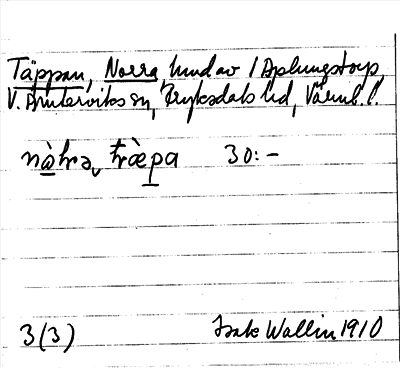 Täppan, Norra, hmd av 1 Aplungstorp,
V. Ämterviks sn, Fryksdals hd, Värml. l.
nὰhrə, træ̀pa 30:-
3(3) Isak Wallin 1910